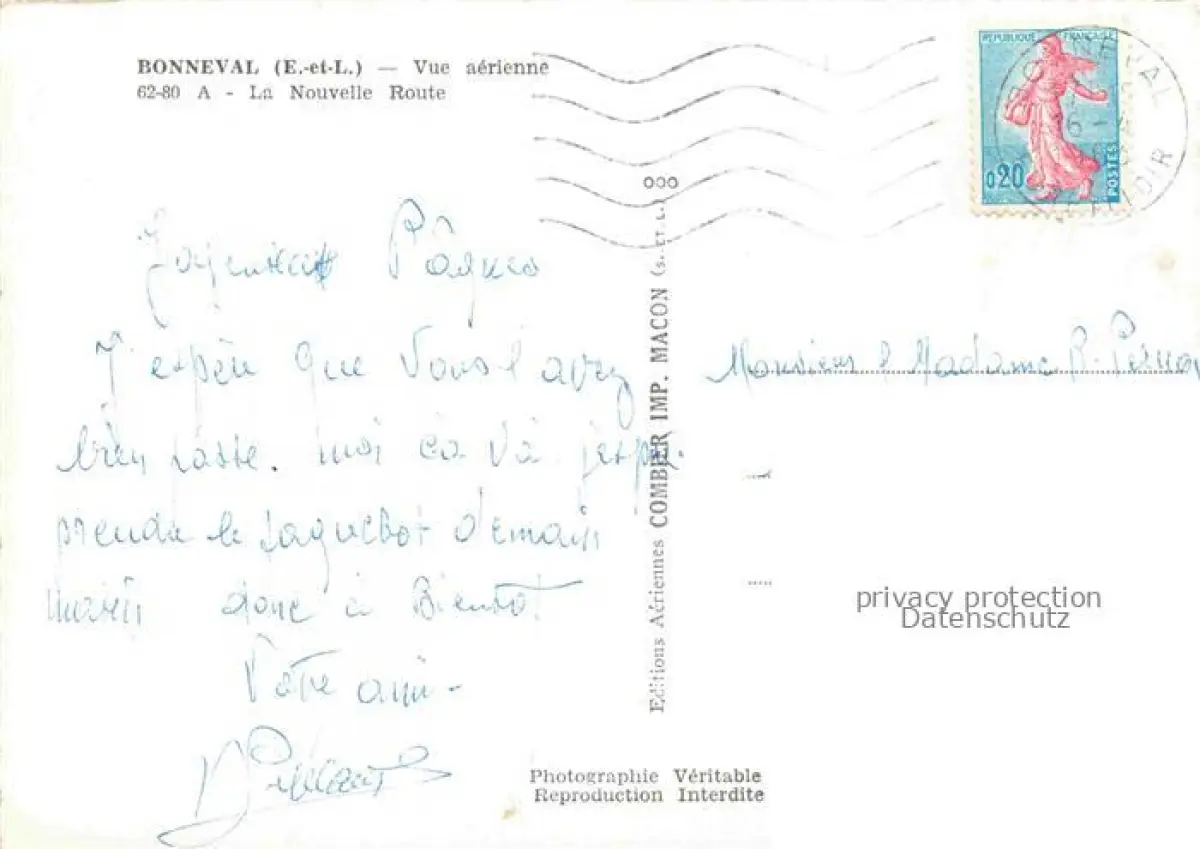 BONNEVAL (E.-et-L.) — Vue aérienne
62-80 A - La Nouvelle Route
REPUBLIQUE FRANÇAISE
0,20
POSTES
BONNEVAL
16 - 4
EURE ET LOIR
Pâques
J'espère que vous l'avez
bien passé. moi ca va. j'espère
prendre le paquebot demain
matin donc à Bientot
Votre ami -
Monsieur & Madame R.
Editions Aériennes COMBIER IMP. MACON (S.-ET-L.) ooo
privacy protection
Datenschutz
Photographie Véritable
Reproduction Interdite